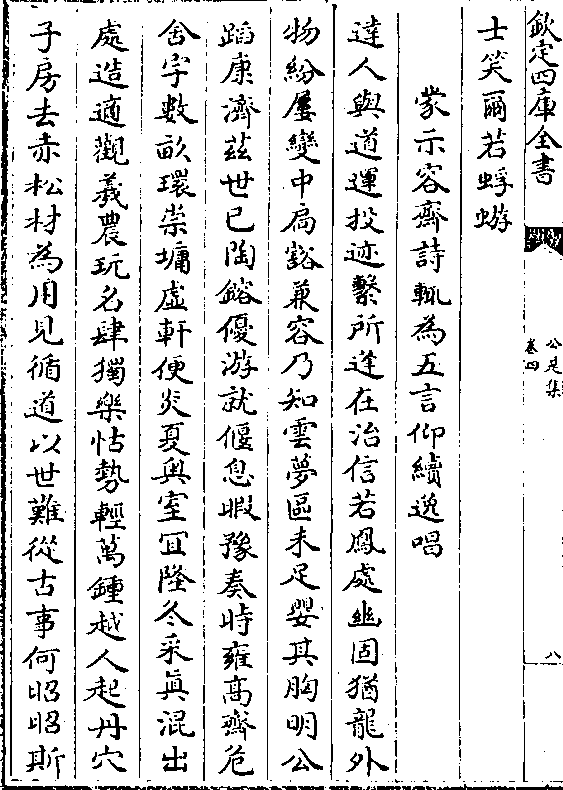 欽定四庫全書
公是集
卷四
八
士笑爾若蜉蝣
蒙示容齋詩輒為五言仰續逸唱
達人與道運投迹繫所逢在冶信若鳳處幽固猶龍外
物紛屢變中扃豁兼容乃知雲夢區未足嬰其胸明公
蹈康濟茲世已陶鎔優游就偃息暇豫奏時雍高齋危
舍宇數畝環崇墉虛軒便炎夏奥室宜隆冬采真混出
處造適觀羲農玩名肆獨樂怙勢輕萬鍾越人起丹穴
子房去赤松材為用見循道以世難從古事何昭昭斯